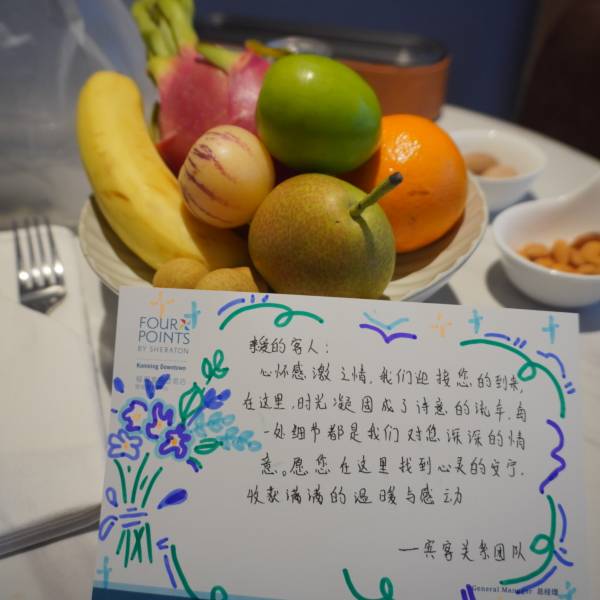 FOUR
POINTS
BY SHERATON
Kunming Downtown
亲爱的客人:
心怀感激之情,我们迎接您的到来,
在这里,时光凝固成了诗意的流年,每
一处细节都是我们对您深深的情
意。愿您在这里找到心灵的安宁,
收获满满的温暖与感动
—宾客关系团队
General Manager 总经理